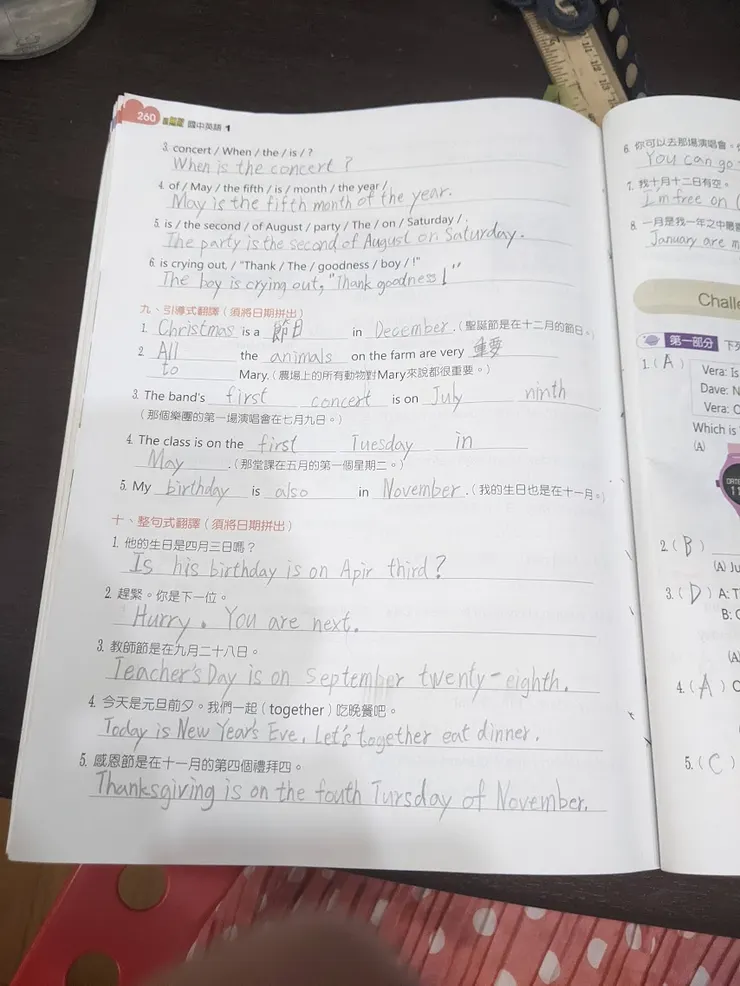 260 國中英語 1
3. concert / When / the / is / ?
When is the concert ?
4. of / May / the fifth / is / month / the year / .
May is the fifth month of the year.
5. is / the second / of August / party / The / on / Saturday / .
The party is the second of August on Saturday.
6. is crying out, / "Thank / The / goodness / boy / !"
The boy is crying out, "Thank goodness!"
九、引導式翻譯（須將日期拼出）
1. Christmas is a 節日 in December.（聖誕節是在十二月的節日。）
2. All the animals on the farm are very 重要
to Mary.（農場上的所有動物對Mary來說都很重要。）
3. The band's first concert is on July ninth
（那個樂團的第一場演唱會在七月九日。）
4. The class is on the first Tuesday in
May.（那堂課在五月的第一個星期二。）
5. My birthday is also in November.（我的生日也是在十一月。）
十、整句式翻譯（須將日期拼出）
1. 他的生日是四月三日嗎？
Is his birthday is on Apir third?
2. 趕緊。你是下一位。
Hurry. You are next.
3. 教師節是在九月二十八日。
Teacher's Day is on September twenty-eighth.
4. 今天是元旦前夕。我們一起（together）吃晚餐吧。
Today is New Year's Eve. Let's together eat dinner.
5. 感恩節是在十一月的第四個禮拜四。
Thanksgiving is on the fouth Tursday of November.
6. 你可以去那場演唱會。
You can go
7. 我十月十二日有空。
I'm free on
8. 一月是我一年之中最
January are m
Challe
第一部分 下
1. ( A )
Vera: Is
Dave: N
Vera: O
Which is
(A)
DATE
11
2. ( B )
(A) Ju
3. ( D ) A: T
B: C
(A)
4. ( A ) C
5. ( C )